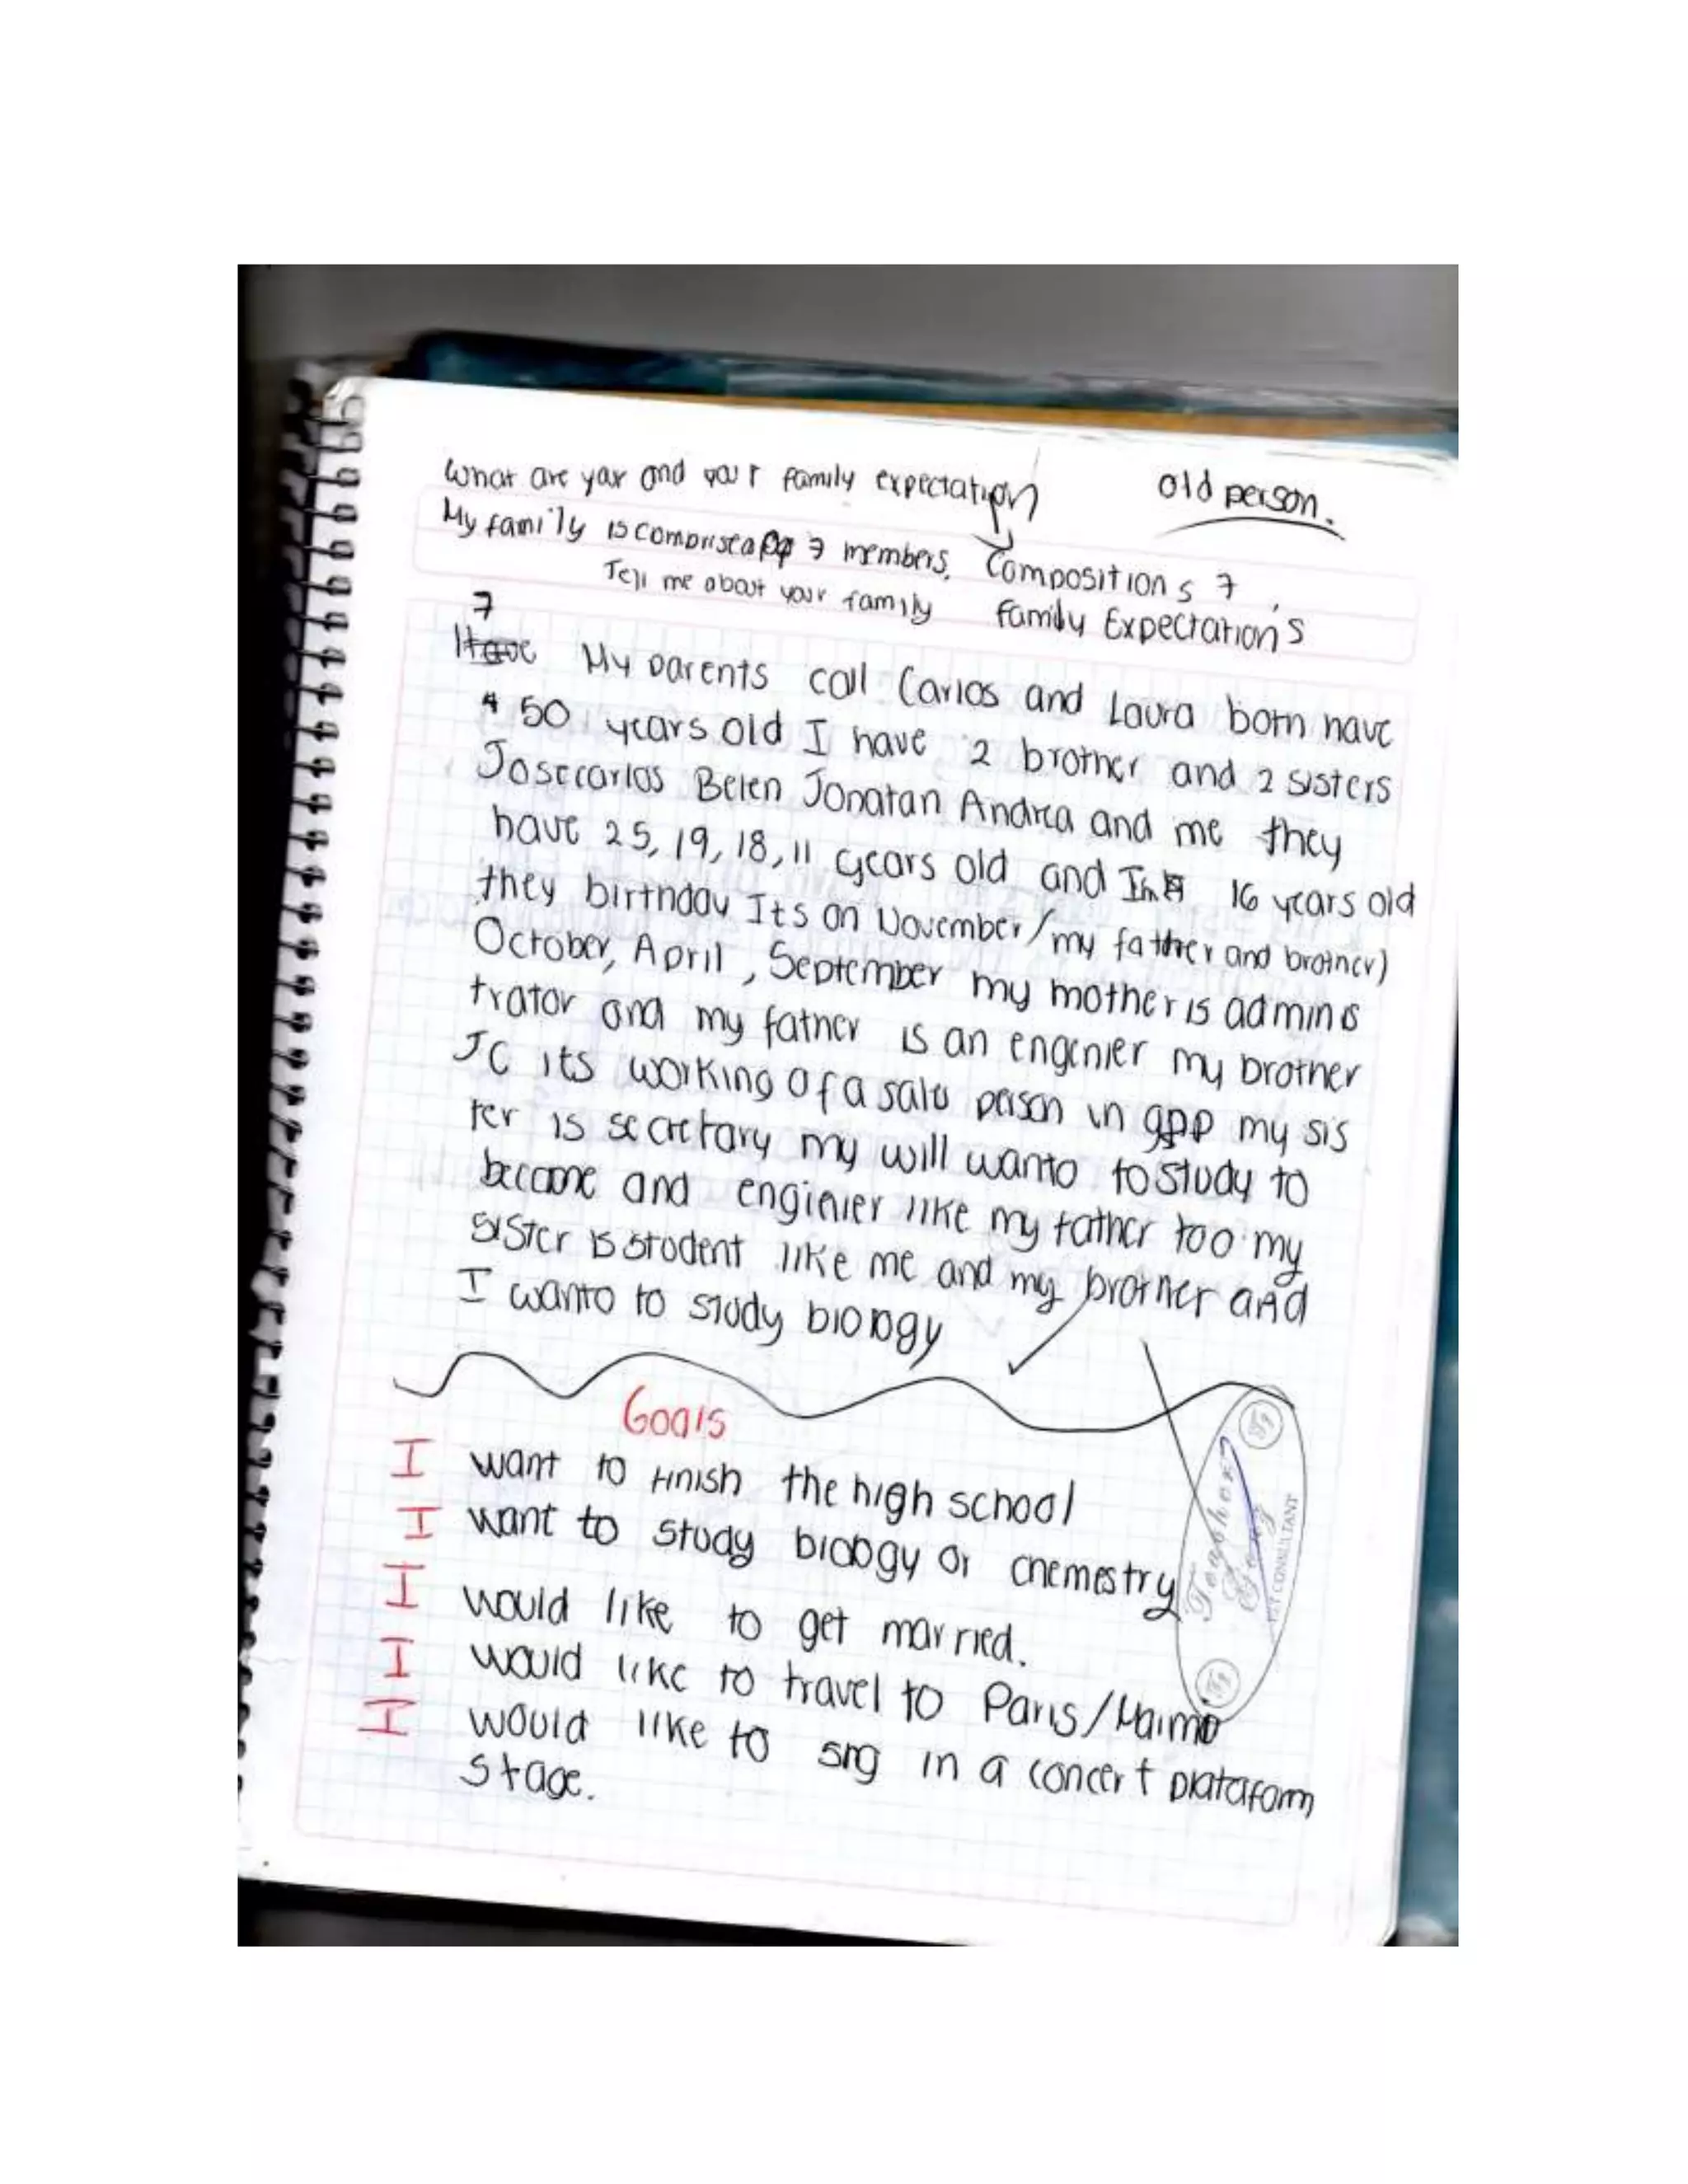 What are your and your family expectation
old person.
My family is comprised of 7 members.
Compositions 7
Tell me about your family
Family Expectations
7
Have My parents call Carlos and Laura both have
50 years old I have 2 brother and 2 sisters
Josecarlos Belen Jonatan Andrea and me they
have 25, 19, 18, 11 years old and Im 16 years old
they birthday Its on November/my father and brother)
October, April, September my mother is adminis
trator and my father is an engenier my brother
JC its working of a sale person in gpp my sis
ter is secretary my will wanto to study to
become and enginier like my father too my
sister is student like me and my brother and
I wanto to study biology
Goals
I want to finish the high school
I want to study biology or chemestry
I would like to get married.
I would like to travel to Paris/
I would like to sing in a concert plataform
stage.
Teacher
CONSULTANT